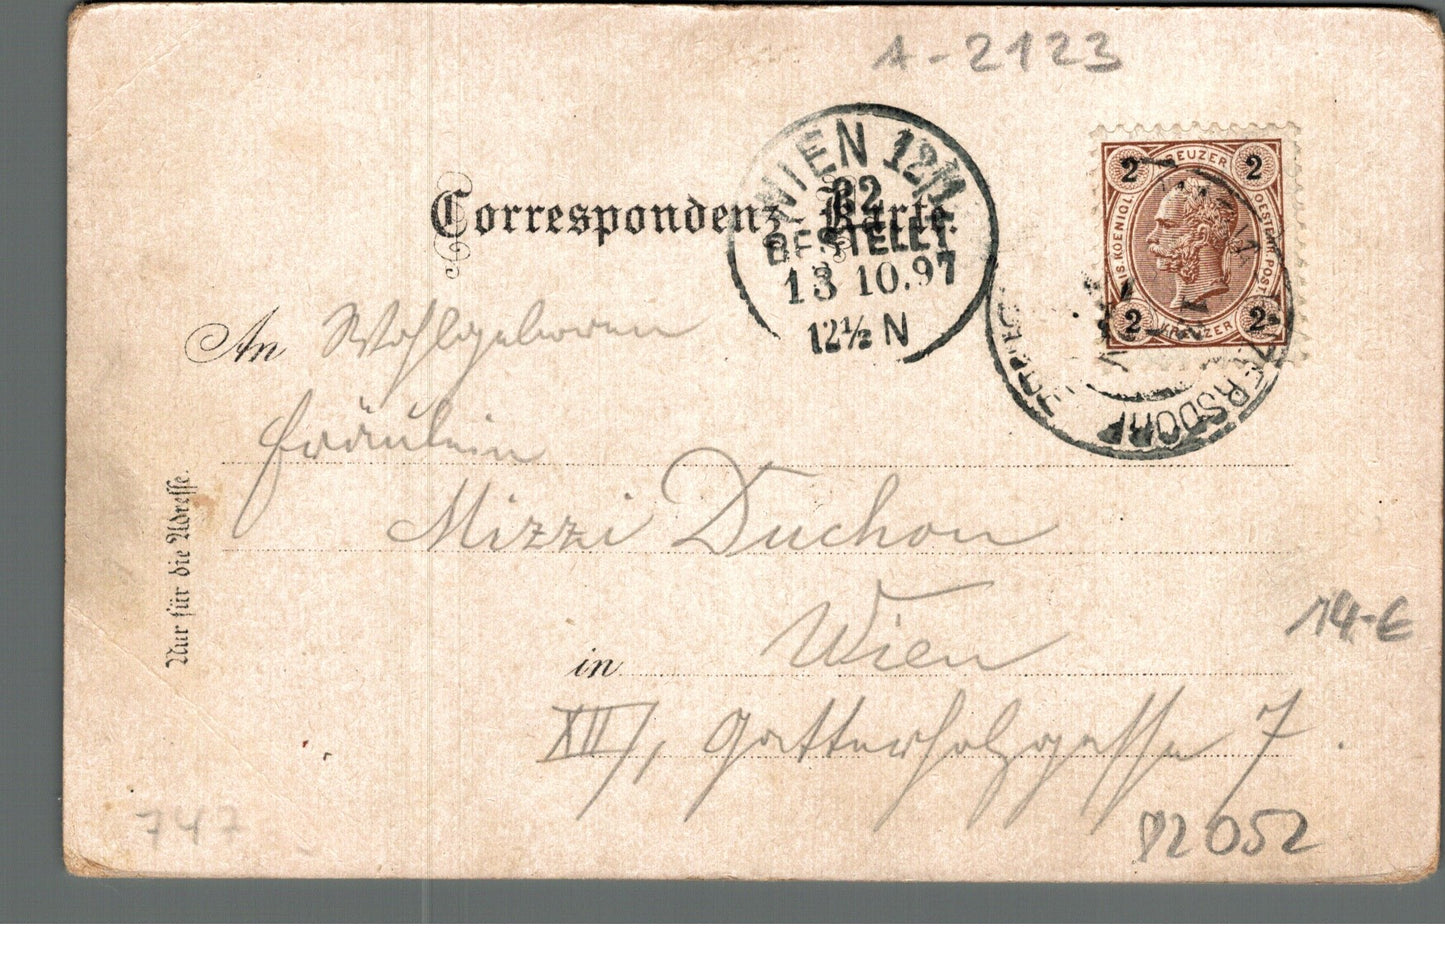 A-2123
Correspondenz-Karte.
WIEN 12/1
82
BESTELLT
13 10.97
12½ N
2 KREUZER 2
KAIS. KOENIGL. OESTERR. POST
2 KREUZER 2
ERSDORF
An Wohlgeboren
Fräulein
Mizzi Duchon
in Wien
XII/1, Gatterholzgasse 7.
Nur für die Adresse.
14-€
747
82052